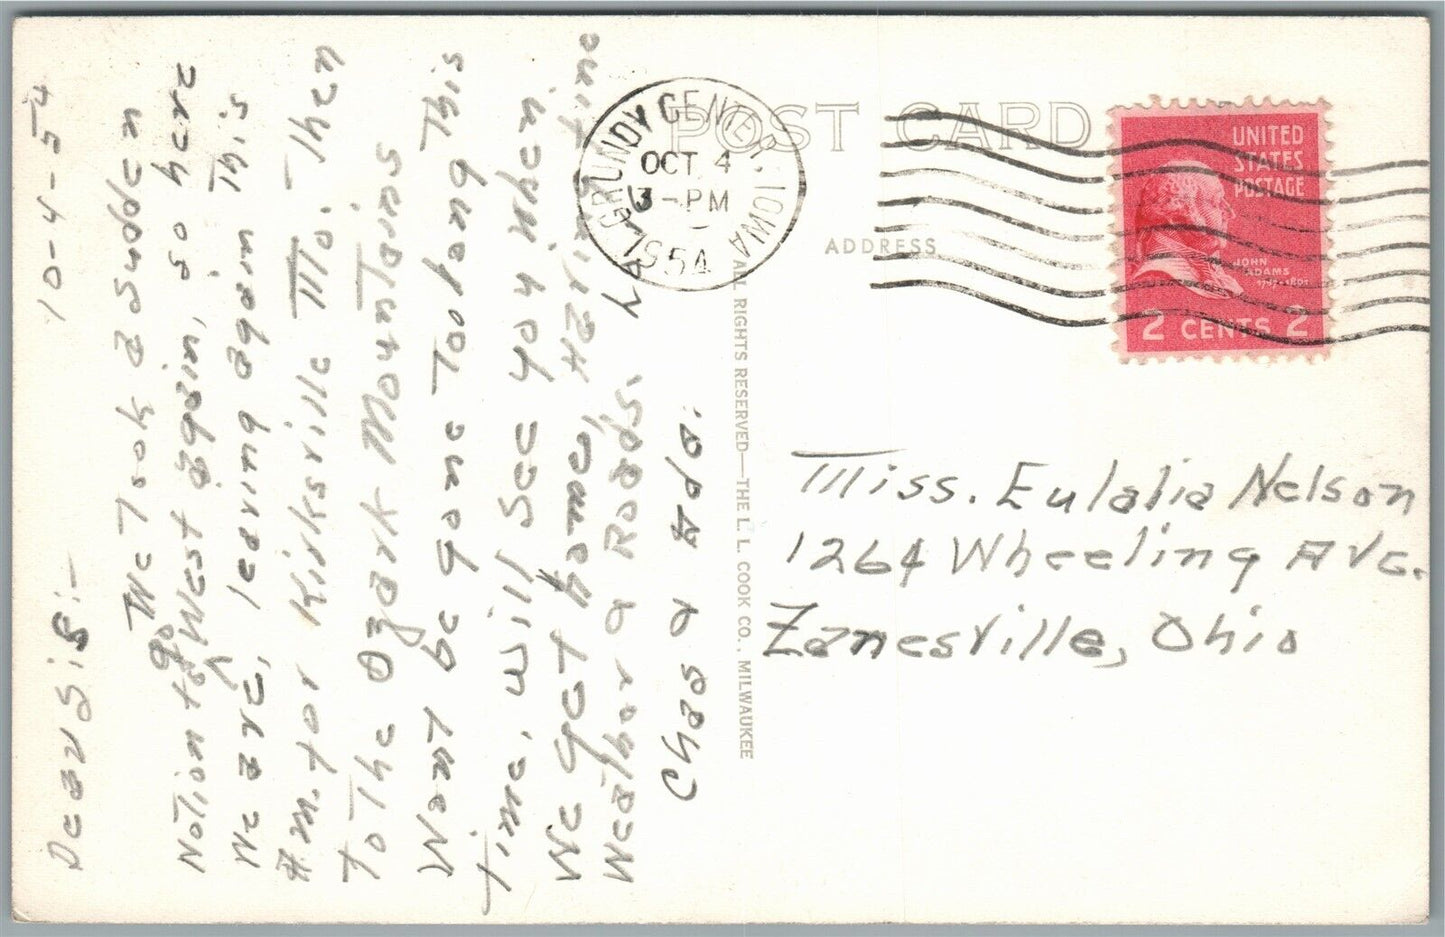 10-4-54
Dear Sis:-
We Took a sudden
Notion to go West again, so here
We are, leaving again This
A.m. for Kirksville Mo. Then
To The Ozark Mountains
Wont be gone Too long This
Time, will see you when
We get home, Having Fine
Weather & Roads.
Chas & Ado.
POST CARD
GRUNDY CENTER, IOWA
OCT 4
3-PM
1954
ADDRESS
UNITED
STATES
POSTAGE
JOHN
ADAMS
1797-1801
2 CENTS 2
ALL RIGHTS RESERVED—THE L. L. COOK CO., MILWAUKEE
Miss. Eulalia Nelson
1264 Wheeling Ave.
Zanesville, Ohio